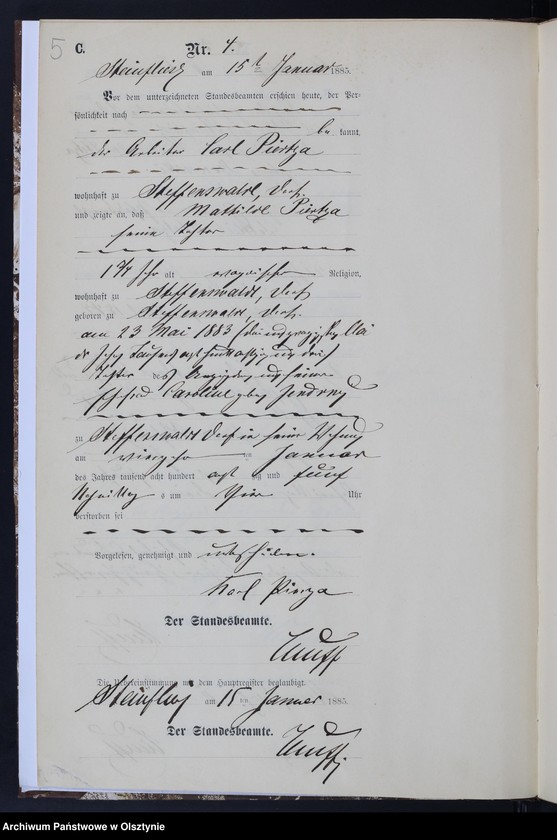 5
C.
Nr. 4.
am 15t Januar 1885.
Vor dem unterzeichneten Standesbeamten erschien heute, der Per-
sönlichkeit nach
be kannt,
der Arbeiter Carl Piertza
wohnhaft zu Steffenswalde, Dorf.
und zeigte an, daß Mathilde Piertza
seine Tochter
1¾ Jahr alt evangelischer Religion,
wohnhaft zu Steffenswalde, Dorf
geboren zu Steffenswalde, Dorf.
am 23 Mai 1883 Mai
Tochter des und seiner
Ehefrau Caroline geb.
zu Steffenswalde Dorf in seiner Wohnung
am vierzehn ten Januar
des Jahres tausend acht hundert acht zig und fünf
Nachmittag s um Vier Uhr
verstorben sei
Vorgelesen, genehmigt und unterschrieben.
Karl Pierza
Der Standesbeamte.
Die Uebereinstimmung mit dem Hauptregister beglaubigt.
am 15 ten Januar 1885.
Der Standesbeamte.
Archiwum Państwowe w Olsztynie